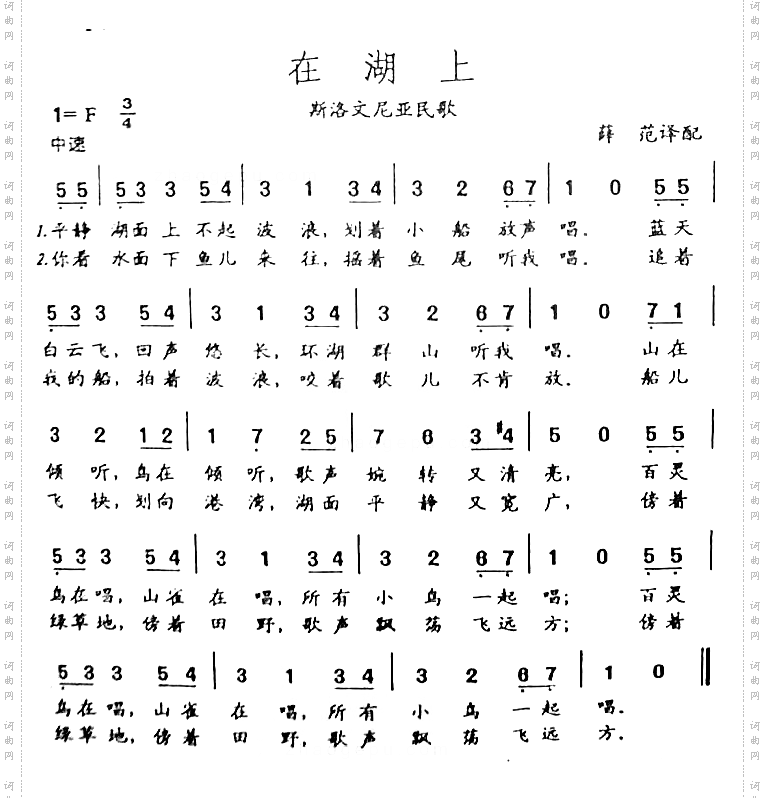 在湖上
斯洛文尼亚民歌
1=F 3/4
薛 范译配
中速
5 5 | 5 3 3 5 4 | 3 1 3 4 | 3 2 6 7 | 1 0 5 5 |
1.平静 湖面上不起波浪,划着小船放声唱. 蓝天
2.你看 水面下鱼儿来往,摇着鱼尾听我唱. 追着
5 3 3 5 4 | 3 1 3 4 | 3 2 6 7 | 1 0 7 1 |
白云飞,回声悠长,环湖群山听我唱. 山在
我的船,拍着波浪,咬着歌儿不肯放. 船儿
3 2 1 2 | 1 7 2 5 | 7 6 3 #4 | 5 0 5 5 |
倾听,鸟在倾听,歌声婉转又清亮, 百灵
飞快,划向港湾,湖面平静又宽广, 傍着
5 3 3 5 4 | 3 1 3 4 | 3 2 6 7 | 1 0 5 5 |
鸟在唱,山雀在唱,所有小鸟一起唱; 百灵
绿草地,傍着田野,歌声飘荡飞远方; 傍着
5 3 3 5 4 | 3 1 3 4 | 3 2 6 7 | 1 0 ‖
鸟在唱,山雀在唱,所有小鸟一起唱.
绿草地,傍着田野,歌声飘荡飞远方.
词曲网
词曲网
词曲网
词曲网
词曲网
词曲网
词曲网
词曲网
词曲网
词曲网
词曲网
词曲网